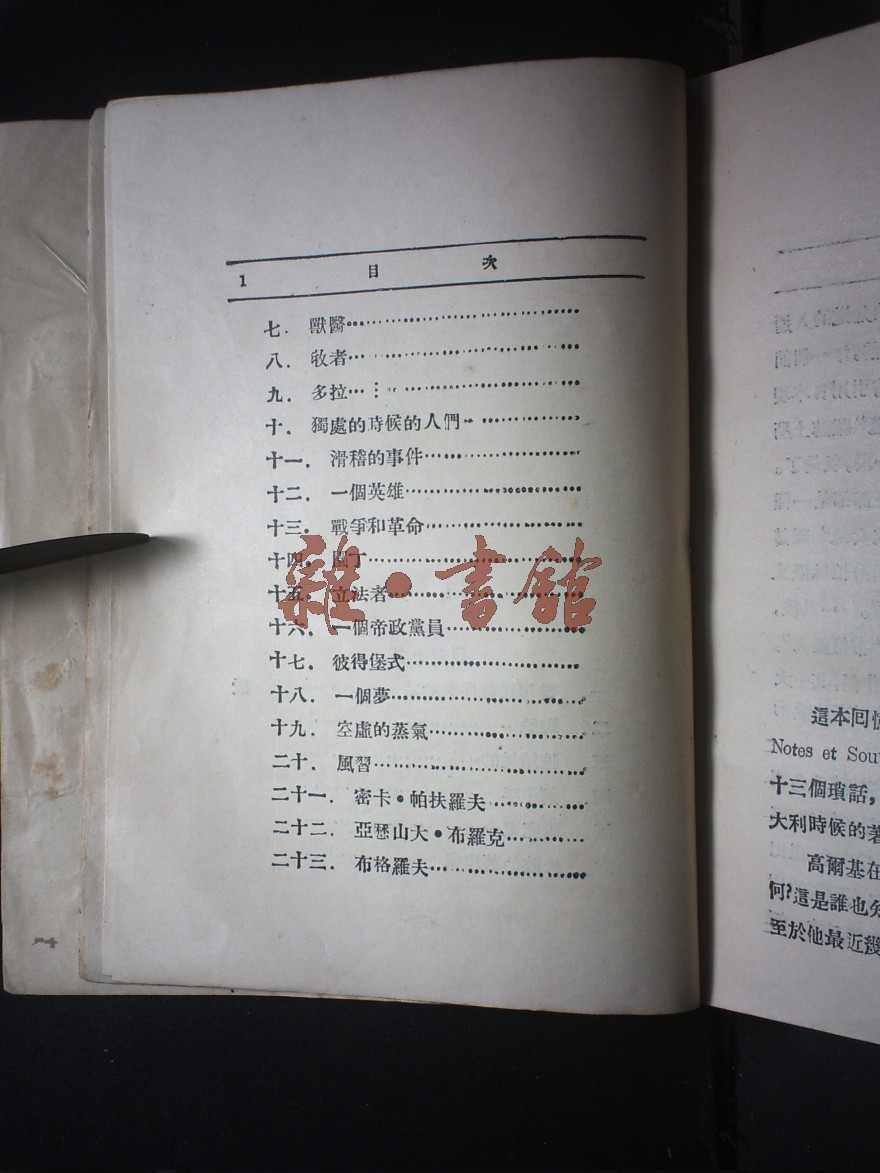 1 目 次
七. 獸醫…………………………
八. 牧者…………………………
九. 多拉…………………………
十. 獨處的時候的人們……………
十一. 滑稽的事件…………………
十二. 一個英雄……………………
十三. 戰爭和革命…………………
十四. 園丁…………………………
十五. 立法者………………………
十六. 一個帝政黨員………………
十七. 彼得堡式……………………
十八. 一個夢………………………
十九. 空虛的蒸氣…………………
二十. 風習…………………………
二十一. 密卡·帕扶羅夫…………
二十二. 亞歷山大·布羅克………
二十三. 布格羅夫…………………
雜·書館
這本回憶
Notes et Sou
十三個瑣話,
大利時候的著
高爾基在
何?這是誰也
至於他最近幾